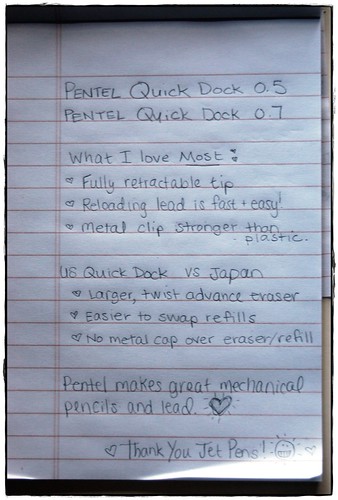 PENTEL Quick Dock 0.5
PENTEL Quick Dock 0.7
What I love Most:
♡ Fully retractable tip
♡ Reloading lead is fast + easy!
♡ Metal clip stronger than
plastic.
US Quick Dock vs Japan
♡ Larger, twist advance eraser
♡ Easier to swap refills
♡ No metal cap over eraser/refill
Pentel makes great mechanical
pencils and lead. ♡
♡ Thank You Jet Pens! ☺ ♡